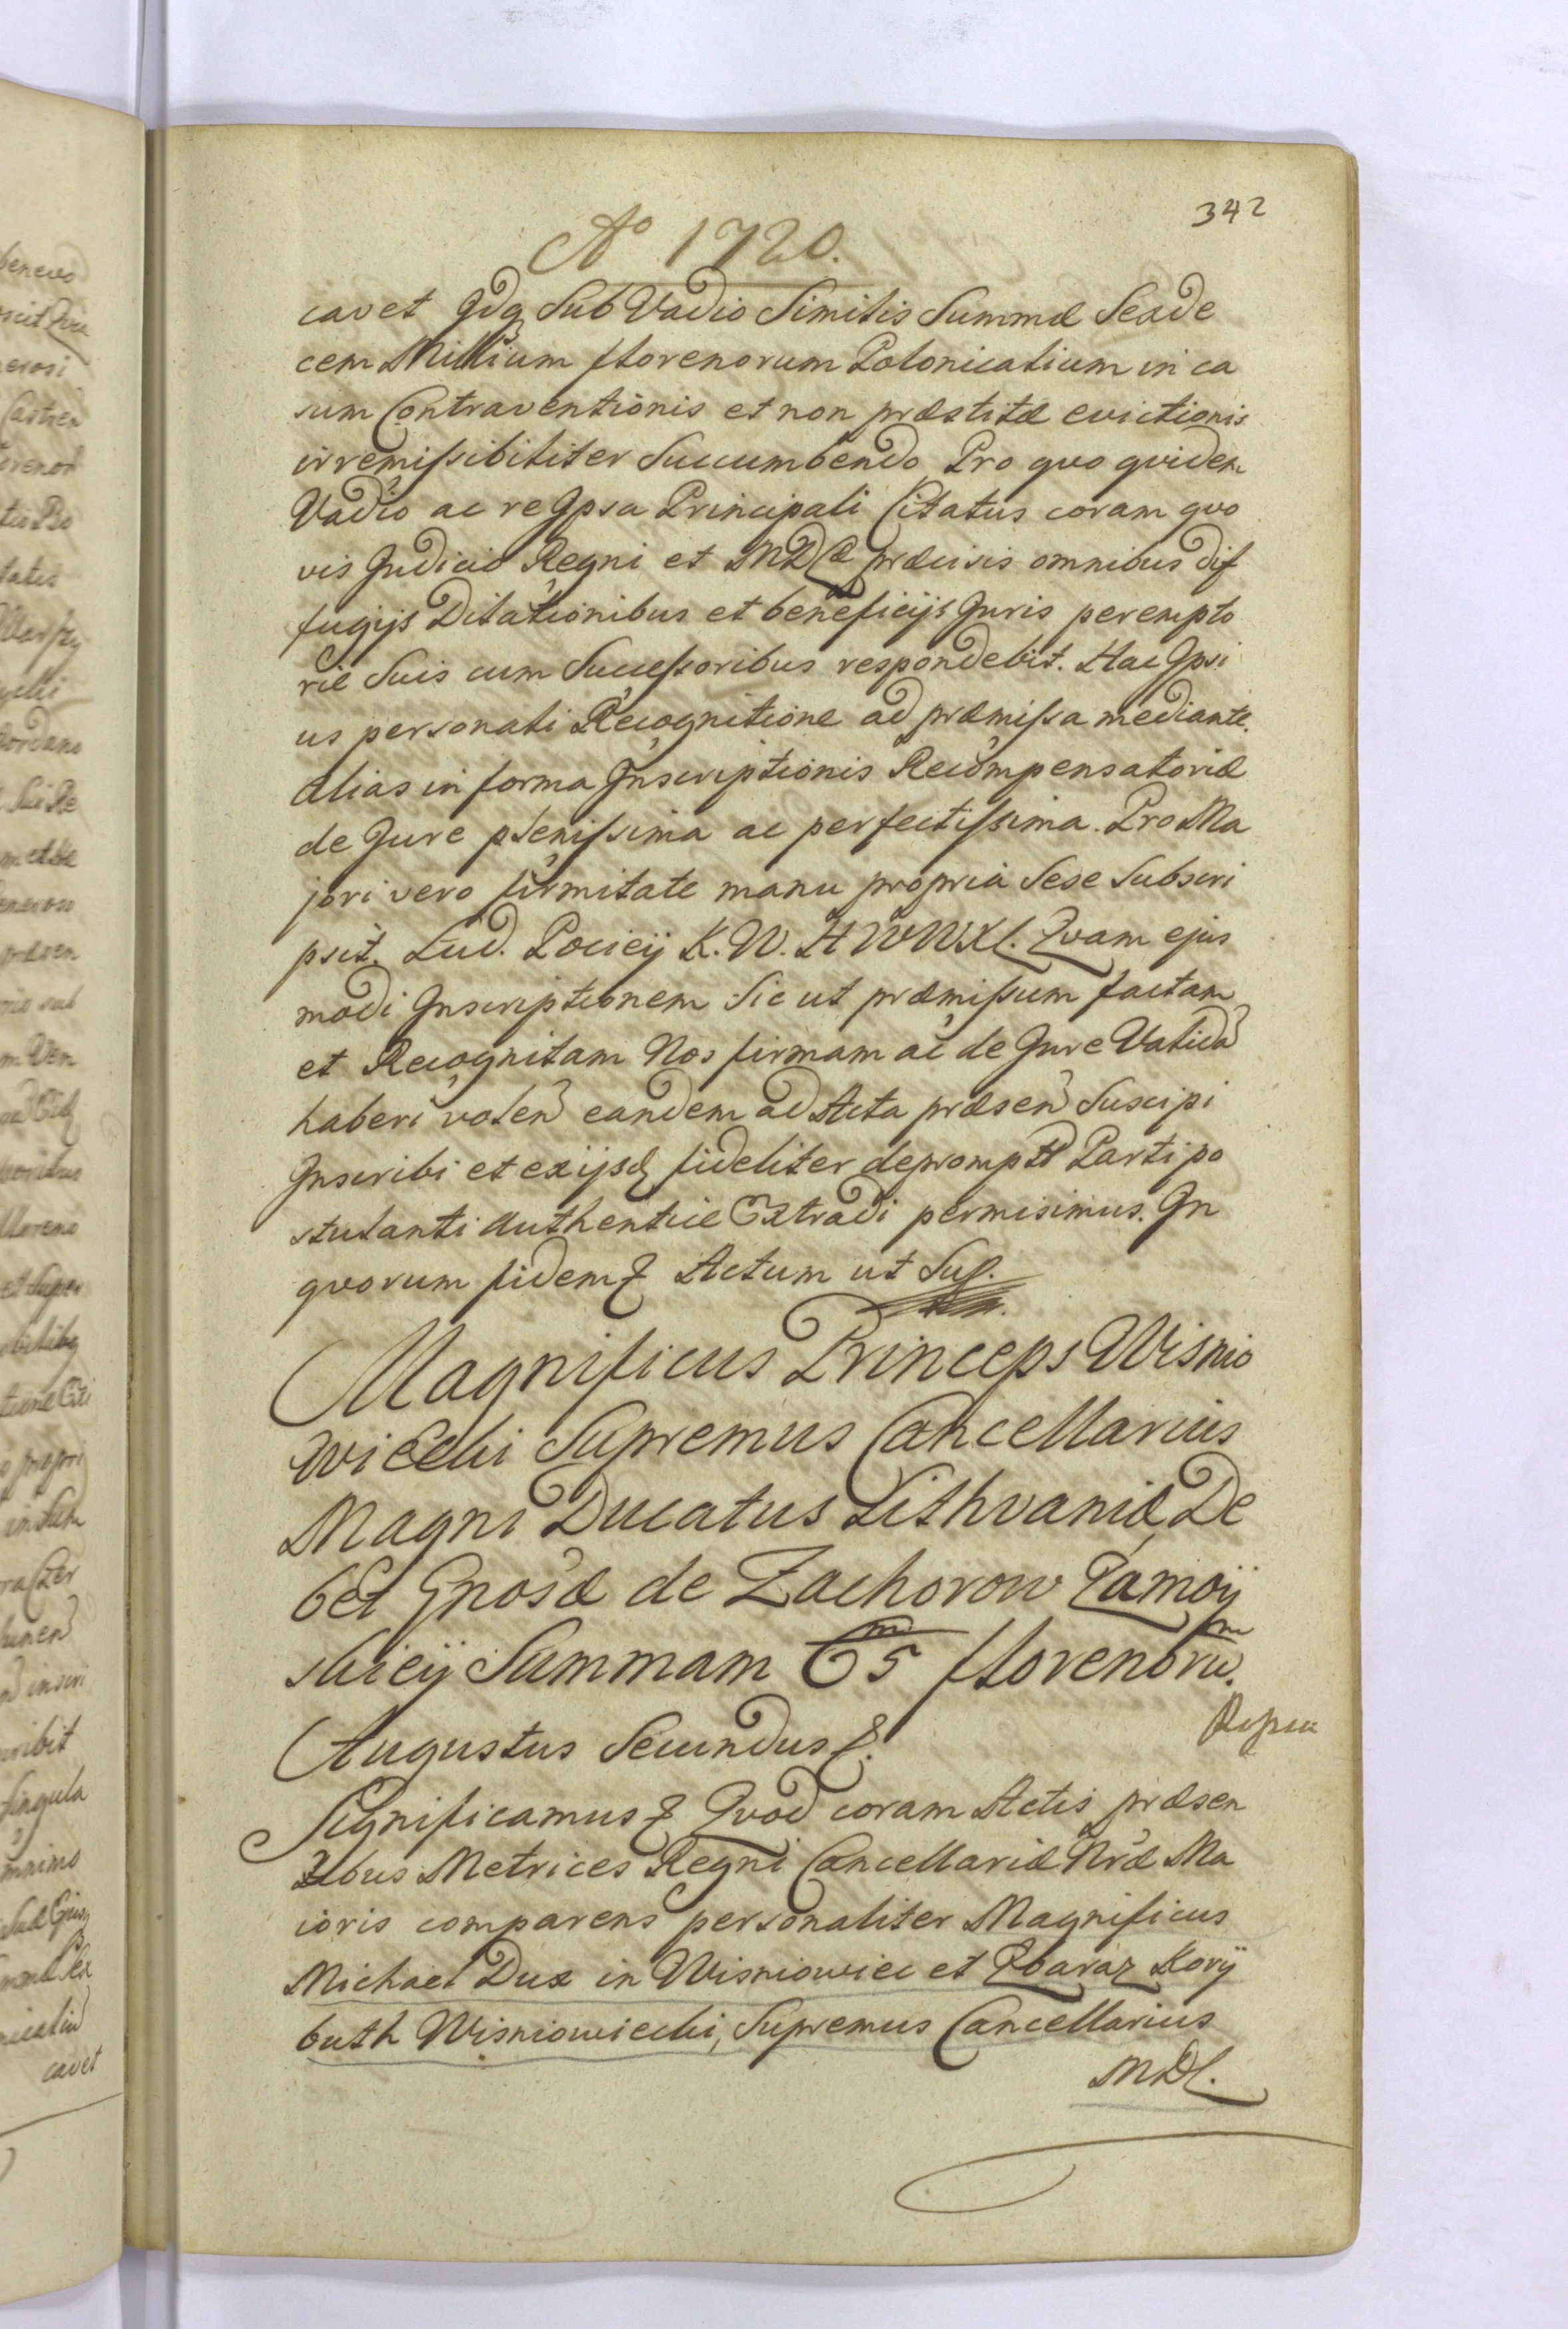 342
Ao 1720.
cavet Idq Sub Vadio Similis Summæ Sexde
cem Millium florenorum Polonicalium in ca
sum Contraventionis et non præstitæ evictionis
irremissibiliter Succumbendo, Pro quo quidem
Vadio ac re Ipsa Principali Citatus coram quo
vis Judicio Regni et MDL præcisis omnibus dif
fugijs Dilationibus et beneficijs Juris perempto
rie Suis cum Successoribus respondebit. Hac Ipsi
us personali Recognitione ad præmissa mediante.
alias in forma Inscriptionis Recompensatoriæ
de Jure plenissima ac perfectissima. Pro Ma
jori vero firmitate manu propria Sese Subscri
psit. Lud. Pociey K. W. H W WXL. Quam ejus
modi Inscriptionem Sic ut præmissum factam
et Recognitam Nos firmam ac de Jure Valida
haberi volen eandem ad Acta præsen Suscipi
Inscribi et ex ijsd fideliter depromptt Parti po
stulanti authentice Extradi permisimus. In
quorum fidem & Actum ut Sup.
Magnificus Princeps Wisnio
wiecki Supremus Cancellarius
Magni Ducatus Lithvaniæ De
bet Gnosæ de Zachorow Zamoÿ
skiey Summam 65 m florenoru.
Augustus Secundus &.
Significamus & Quod coram Actis præsen
tibus Metrices Regni Cancellariæ Nræ Ma
ioris comparens personaliter Magnificus
Michael Dux in Wisniowiec et Zbaraz Korÿ
buth Wisniowiecki, Supremus Cancellarius
MDL.